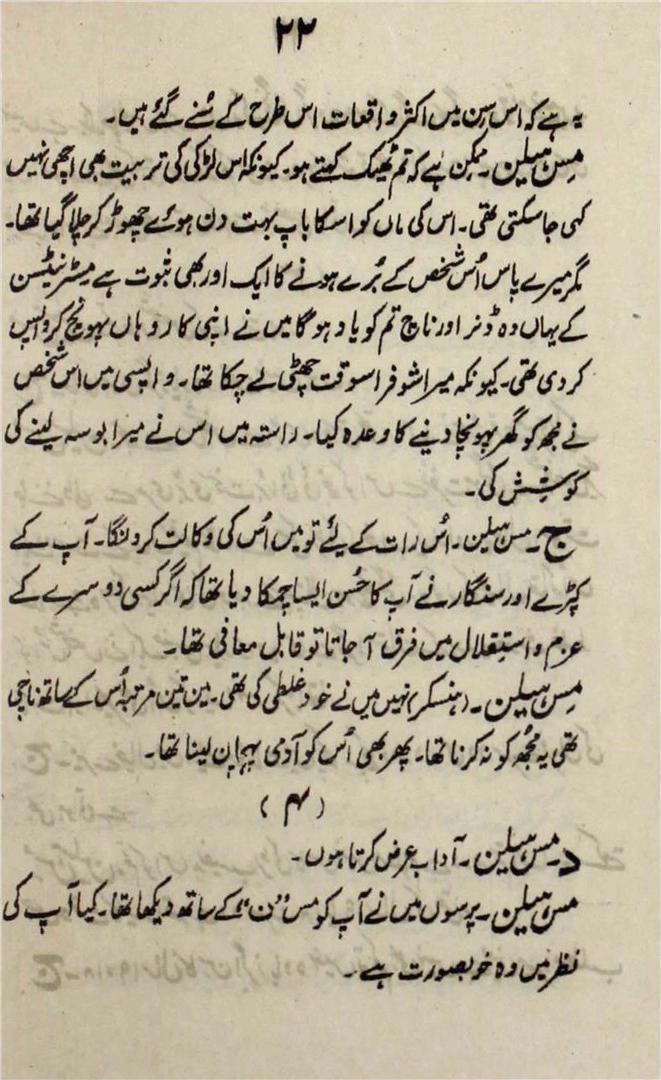 ۲۲
یہ ہے کہ اس سِن میں اکثر واقعات اس طرح کے سُنے گئے ہیں۔
مِس ہیلن۔ ممکن ہے کہ تم ٹھیک کہتے ہو۔ کیونکہ اس لڑکی کی تربیت بھی اچھی نہیں
کہی جاسکتی تھی۔ اس کی ماں کو اسکا باپ بہت دن ہوئے چھوڑ کر چلا گیا تھا۔
مگر میرے پاس اُس شخص کے بُرے ہونے کا ایک اور بھی ثبوت ہے مسٹر نیٹسن
کے یہاں وہ ڈنر اور ناچ تم کو یاد ہوگا میں نے اپنی کار وہاں پہونچ کر واپس
کردی تھی۔ کیونکہ میرا شوفر اسوقت چھٹی لے چکا تھا۔ واپسی میں اس شخص
نے مجھ کو گھر پہونچا دینے کا وعدہ کیا۔ راستہ میں اس نے میرا بوسہ لینے کی
کوشِش کی۔
ج۔ مس ہیلن۔ اُس رات کے لیئے تو میں اُس کی وکالت کرونگا۔ آپ کے
کپڑے اور سنگار نے آپ کا حُسن ایسا چمکا دیا تھا کہ اگر کسی دوسرے کے
عزم و استِقلال میں فرق آجاتا تو قابل معافی تھا۔
مِس ہیلن۔ (ہنسکر) نہیں میں نے خود غلطی کی تھی۔ میں تین مرتبہ اُس کے ساتھ ناچی
تھی یہ مجُھ کو نہ کرنا تھا۔ پھر بھی اُس کو آدمی پہچان لینا تھا۔
(۴)
د۔ مس ہیلن۔ آداب عرض کرتا ہوں۔
مس ہیلن۔ پرسوں میں نے آپ کو مس "ن" کے ساتھ دیکھا تھا۔ کیا آپ کی
نظر میں وہ خوبصورت ہے۔